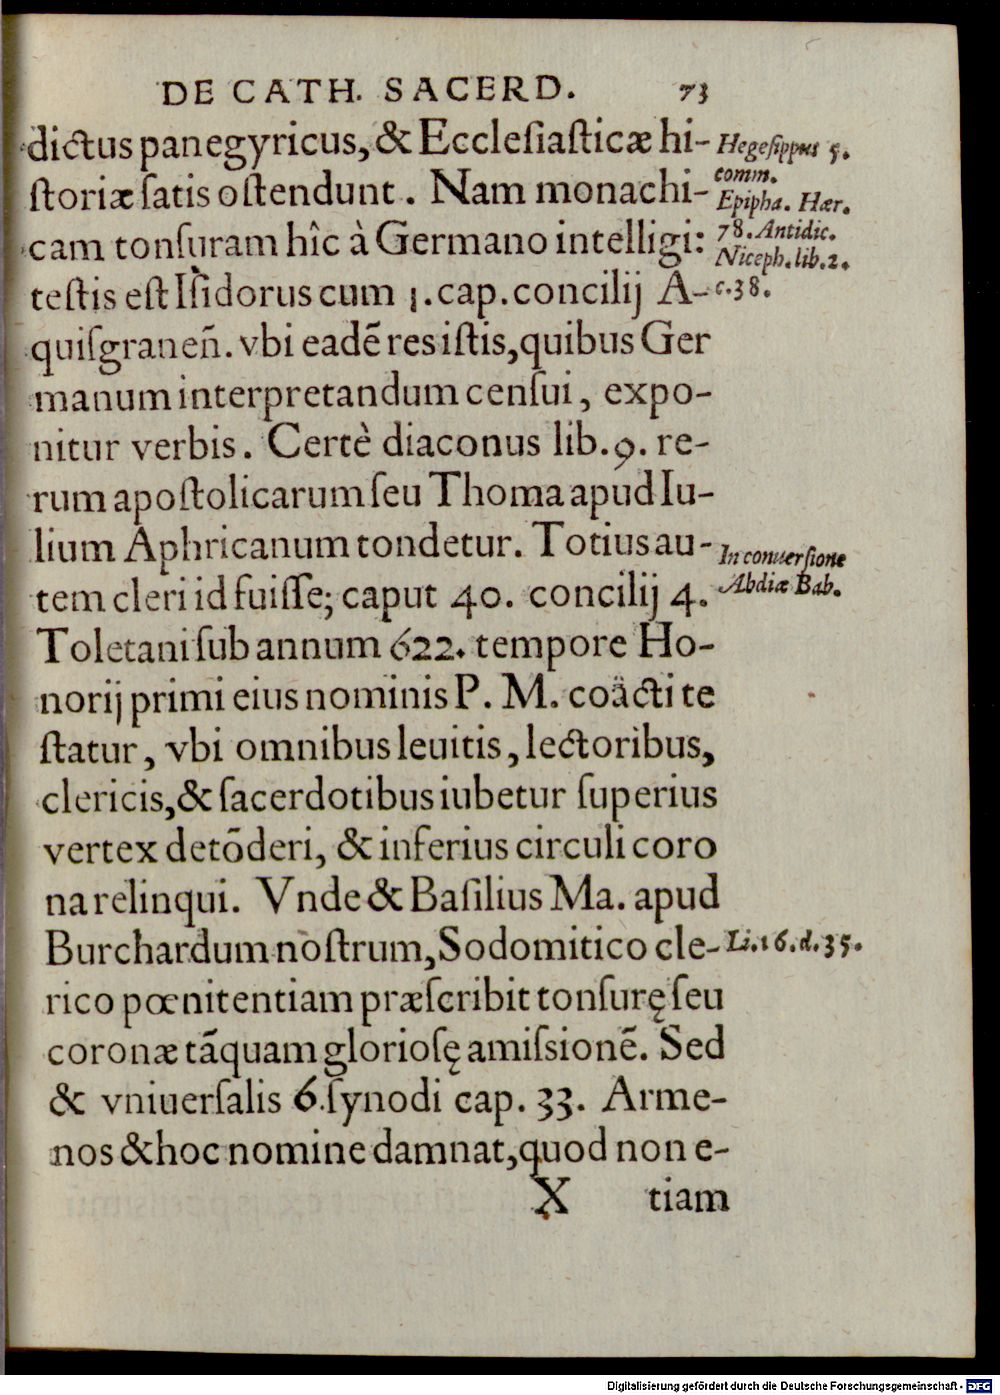 DE CATH. SACERD. 73
dictus panegyricus, & Ecclesiasticæ hi-
storiæ satis ostendunt. Nam monachi-
cam tonsuram hîc à Germano intelligi:
testis est Isidorus cum 1. cap. concilij A-
quisgraneñ. vbi eadē res istis, quibus Ger
manum interpretandum censui, expo-
nitur verbis. Certè diaconus lib. 9. re-
rum apostolicarum seu Thoma apud Iu-
lium Aphricanum tondetur. Totius au-
tem cleri id fuisse; caput 40. concilij 4.
Toletani sub annum 622. tempore Ho-
norij primi eius nominis P. M. coäcti te
statur, vbi omnibus leuitis, lectoribus,
clericis, & sacerdotibus iubetur superius
vertex detōderi, & inferius circuli coro
na relinqui. Vnde & Basilius Ma. apud
Burchardum nostrum, Sodomitico cle-
rico pœnitentiam præscribit tonsurę seu
coronæ tāquam gloriosę amissionē. Sed
& vniuersalis 6. synodi cap. 33. Arme-
nos & hoc nomine damnat, quod non e-
X tiam
Hegesippus 5.
comm.
Epipha. Hær.
78. Antidic.
Niceph. lib. 2.
c. 38.
In conuersione
Abdiæ Bab.
Li. 16. d. 35.
Digitalisierung gefördert durch die Deutsche Forschungsgemeinschaft - DFG